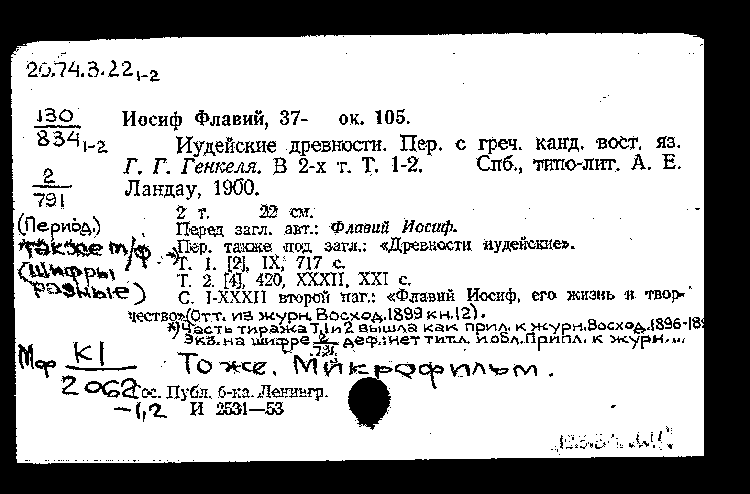 20.74.3.22₁₋₂
130
834₁₋₂
Иосиф Флавий, 37- ок. 105.
Иудейские древности. Пер. с греч. канд. вост. яз.
2
791
Г. Г. Генкеля. В 2-х т. Т. 1-2. Спб., типо-лит. А. Е.
Ландау, 1900.
2 т. 22 см.
(Период.)
Перед загл. авт.: Флавий Иосиф.
также м/ф
*)Пер. также под загл.: «Древности иудейские».
(Шифры
разные)
Т. 1. [2], IX, 717 с.
Т. 2. [4], 420, XXXII, XXI с.
С. I-XXXII второй паг.: «Флавий Иосиф, его жизнь и твор-
чество»(Отт. из журн. Восход. 1899 кн. 12).
*)Часть тиража Т.1 и 2 вышла как прил. к журн. Восход. 1896-189
Экз. на шифре 2/791 деф.: нет тит. л. и обл. Припл. к журн. ...
Мф К1
2062
-1,2
То же. Микрофильм.
Гос. Публ. б-ка. Ленингр.
И 2531—53